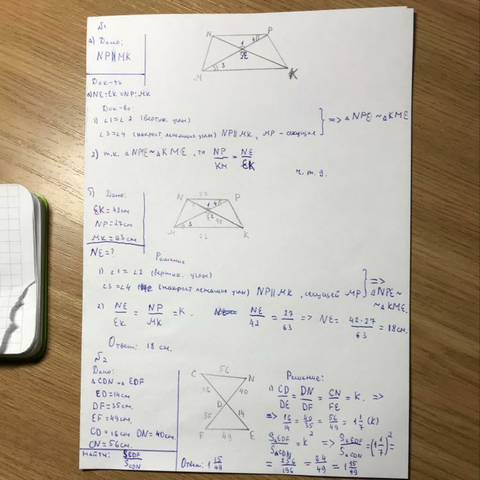 №1
а) Дано:
NP∥MK
N P
1 4
2 E
M 3 K
Док-ть
а) NE:EK=NP:MK
Док-во:
1) ∠1=∠2 (вертик. углы)
∠3=∠4 (накрест лежащие углы) NP∥MK, MP-секущая
=> △NPE~△KME
2) т.к. △NPE~△KME, то NP/KM = NE/EK
ч.т.д.
б) Дано:
EK=42см
NP=27см
MK=63см
NE=?
N P
M K
Решение
1) ∠1=∠2 (вертик. углы)
∠3=∠4 (накрест лежащие углы) NP∥MK, секущей MP
=> △NPE~△KME.
2) NE/EK = NP/MK = K. NE/42 = 27/63 => NE= 42·27/63 = 18см.
Ответ: 18 см.
№2
Дано:
△CDN и EDF
ED=14см
DF=35см.
EF=49см.
CD=16см DN=40см.
CN=56см.
Найти: SEDF/SCDN
C 56 N
16 40
D
35 14
F 49 E
Решение:
1) CD/DE = DN/DF = CN/FE = K. =>
=> 16/14 = 40/35 = 56/49 = 1 1/7 (K)
SEDF/SCDN = K² => SEDF/SCDN = (1 1/7)² =
= 256/196 = 64/49 = 1 15/49
Ответ: 1 15/49